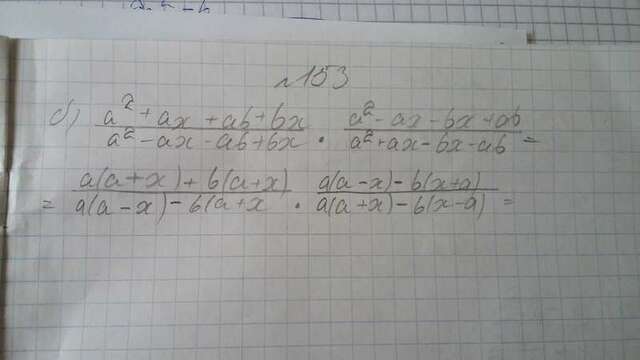 №153
б) (a² + ax + ab + bx)/(a² - ax - ab + bx) · (a² - ax - bx + ab)/(a² + ax - bx - ab) =
= (a(a + x) + b(a + x))/(a(a - x) - b(a + x) · (a(a - x) - b(x + a))/(a(a + x) - b(x - a)) =